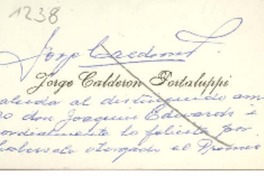 1238
Jorge Calderon Portaluppi
saluda al distinguido am
don Joaquin Edwards
cordialmente lo felicita por
otorgado el Premio